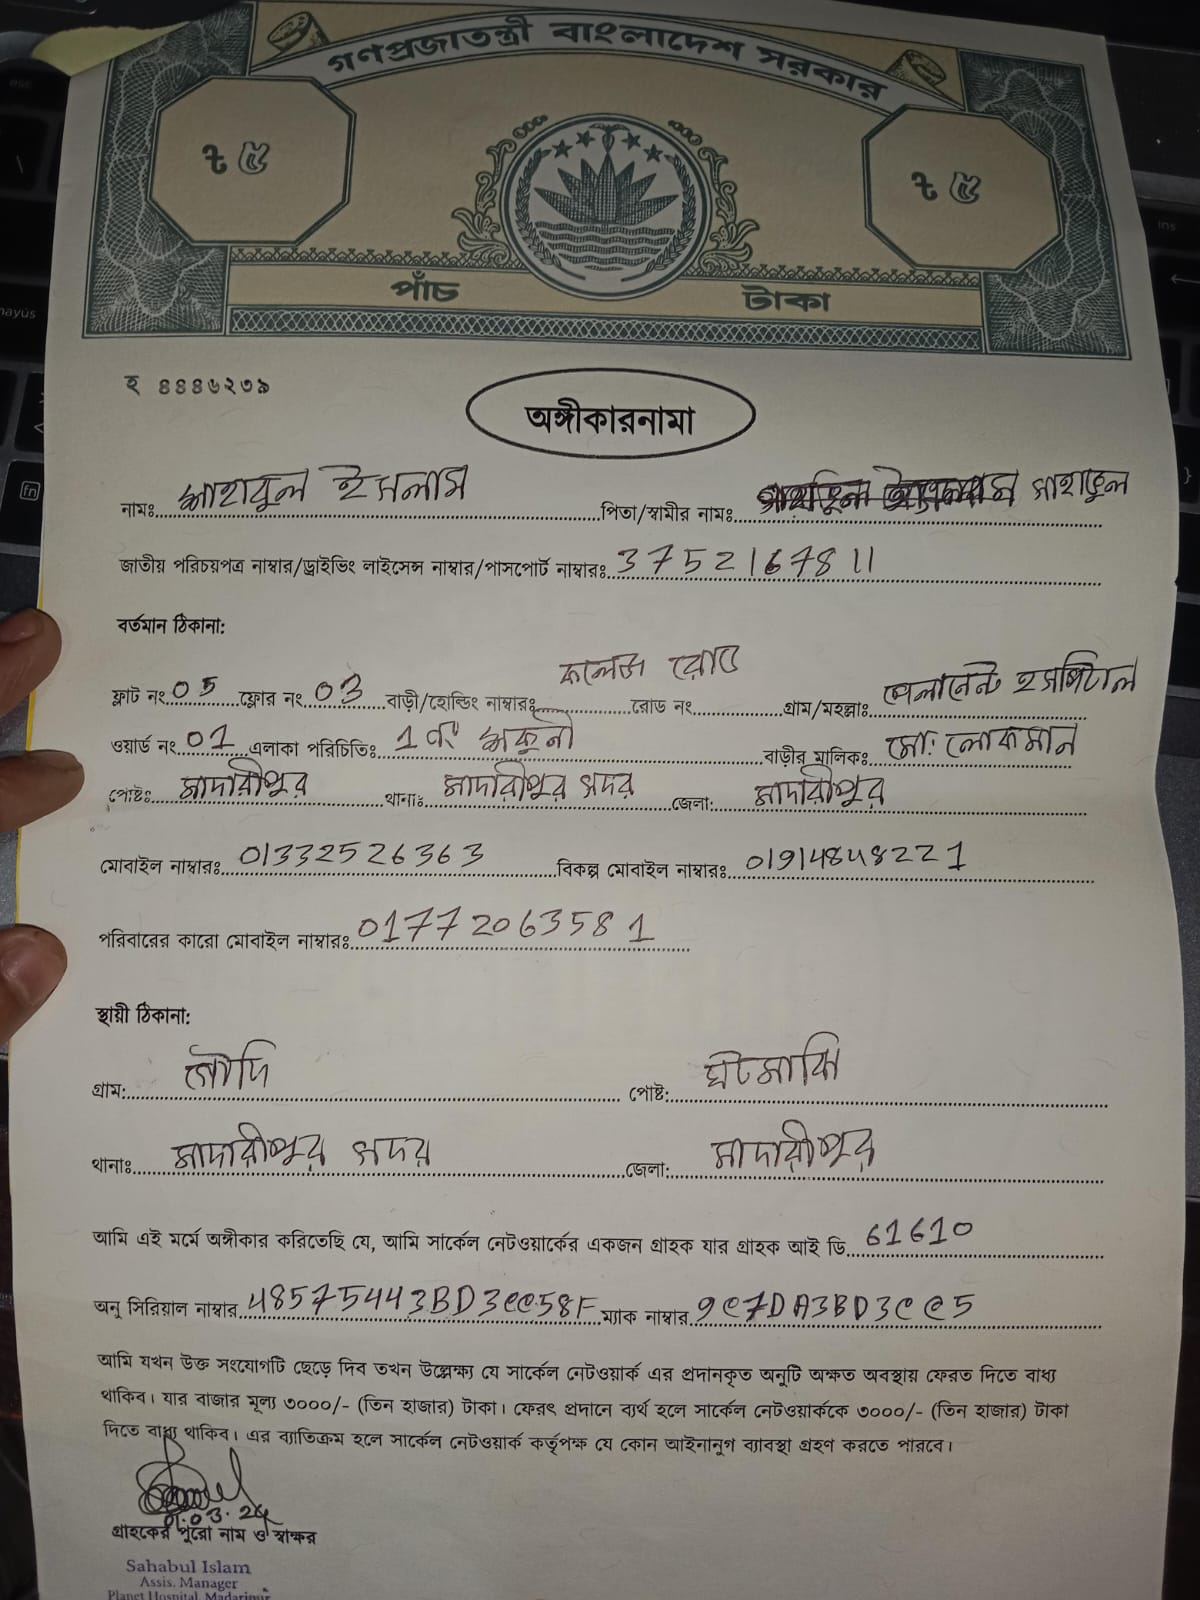 গণপ্রজাতন্ত্রী বাংলাদেশ সরকার
৳ ৫ ৳ ৫
পাঁচ টাকা
হ ৪৪৪৬২৩৯
অঙ্গীকারনামা
নামঃ সাহাবুল ইসলাম পিতা/স্বামীর নামঃ
জাতীয় পরিচয়পত্র নাম্বার/ড্রাইভিং লাইসেন্স নাম্বার/পাসপোর্ট নাম্বারঃ 3752167811
বর্তমান ঠিকানা:
ফ্লাট নং 05 ফ্লোর নং 03 বাড়ী/হোল্ডিং নাম্বারঃ কলেজ রোড রোড নং গ্রাম/মহল্লাঃ পেলানেন্ট হসপিটাল
ওয়ার্ড নং 01 এলাকা পরিচিতিঃ 1 নং শকুনী বাড়ীর মালিকঃ মো: লোকমান
পোষ্টঃ মাদারীপুর থানাঃ মাদারীপুর সদর জেলা: মাদারীপুর
মোবাইল নাম্বারঃ 01332526363 বিকল্প মোবাইল নাম্বারঃ 01914848221
পরিবারের কারো মোবাইল নাম্বারঃ 01772063581
স্থায়ী ঠিকানা:
গ্রাম: পোষ্ট: ঘটমাঝি
থানাঃ মাদারীপুর সদর জেলা: মাদারীপুর
আমি এই মর্মে অঙ্গীকার করিতেছি যে, আমি সার্কেল নেটওয়ার্কের একজন গ্রাহক যার গ্রাহক আই ডি 61610
অনু সিরিয়াল নাম্বার 485754443BD3CC58F ম্যাক নাম্বার 9C7DA3BD3CC5
আমি যখন উক্ত সংযোগটি ছেড়ে দিব তখন উল্লেক্ষ্য যে সার্কেল নেটওয়ার্ক এর প্রদানকৃত অনুটি অক্ষত অবস্থায় ফেরত দিতে বাধ্য
থাকিব। যার বাজার মূল্য ৩০০০/- (তিন হাজার) টাকা। ফেরৎ প্রদানে ব্যর্থ হলে সার্কেল নেটওয়ার্ককে ৩০০০/- (তিন হাজার) টাকা
দিতে বাধ্য থাকিব। এর ব্যাতিক্রম হলে সার্কেল নেটওয়ার্ক কর্তৃপক্ষ যে কোন আইনানুগ ব্যাবস্থা গ্রহণ করতে পারবে।
01.03.24
গ্রাহকের পুরো নাম ও স্বাক্ষর
Sahabul Islam
Assis. Manager
Planet Hospital, Madaripur